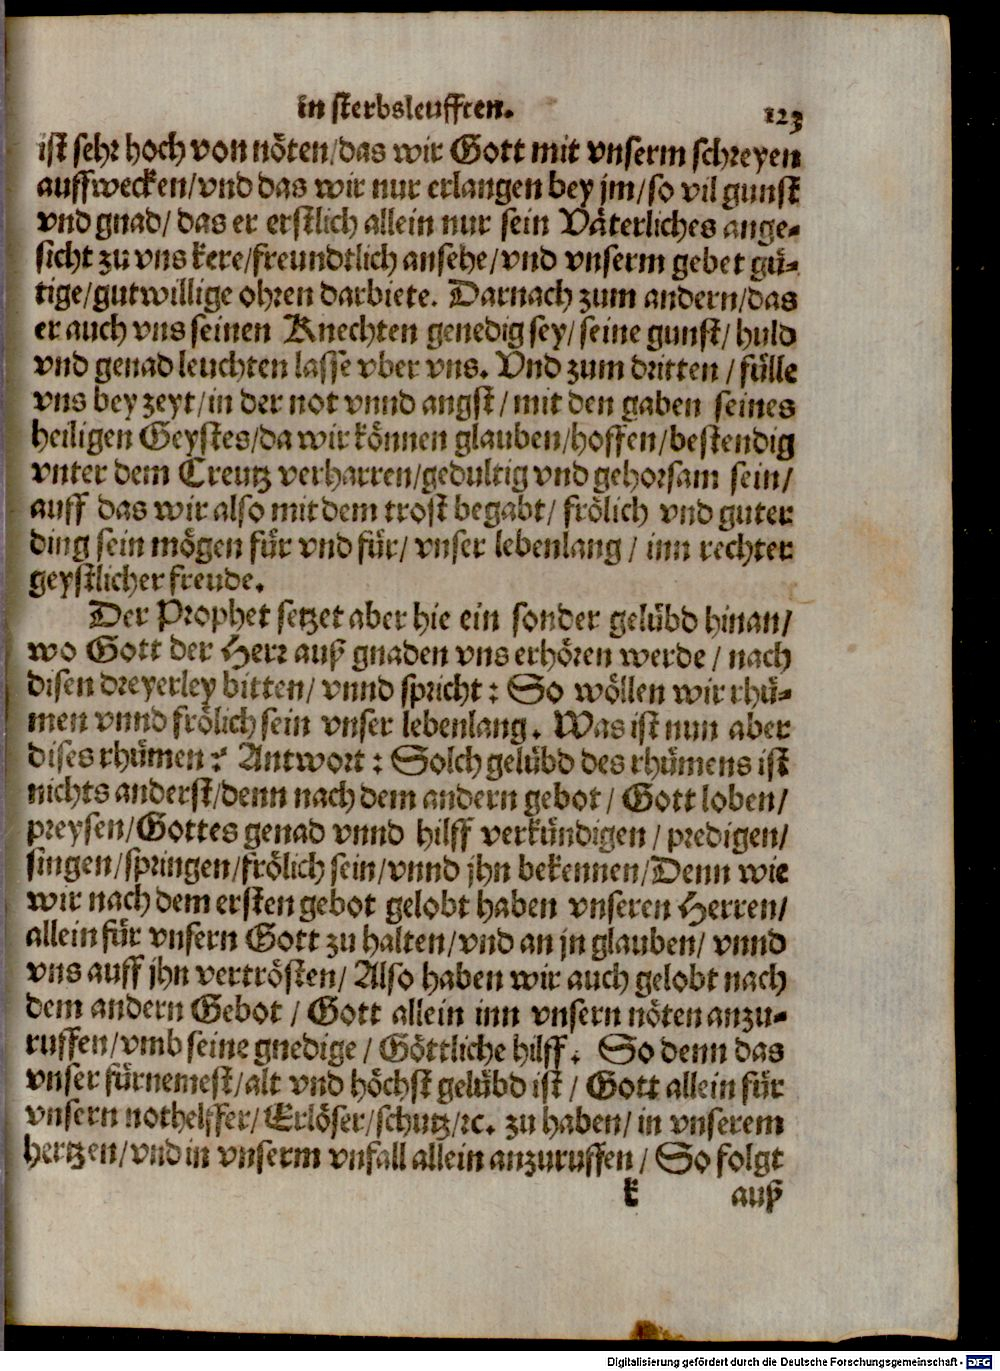 in sterbsleufften. 123
ist sehr hoch von nöten/das wir Gott mit vnserm schreyen
auffwecken/vnd das wir nur erlangen bey jm/so vil gunst
vnd gnad/ das er erstlich allein nur sein Väterliches ange-
sicht zu vns kere/freundtlich ansehe/vnd vnserm gebet gü-
tige/gutwillige ohren darbiete. Darnach zum andern/das
er auch vns seinen Knechten genedig sey/ seine gunst/ huld
vnd genad leuchten lasse vber vns. Vnd zum dritten / fülle
vns bey zeyt/in der not vnnd angst/ mit den gaben seines
heiligen Geystes/da wir können glauben/hoffen/bestendig
vnter dem Creutz verharren/gedultig vnd gehorsam sein/
auff das wir also mit dem trost begabt/ frölich vnd guter
ding sein mögen für vnd für/ vnser lebenlang / inn rechter
geystlicher freude.
Der Prophet setzet aber hie ein sonder gelübd hinan/
wo Gott der Herr auß gnaden vns erhören werde / nach
disen dreyerley bitten/ vnnd spricht: So wöllen wir rhü-
men vnnd frölich sein vnser lebenlang. Was ist nun aber
dises rhümen? Antwort: Solch gelübd des rhümens ist
nichts anderst/denn nach dem andern gebot/ Gott loben/
preysen/Gottes genad vnnd hilff verkündigen / predigen/
singen/springen/frölich sein/vnnd jhn bekennen/Denn wie
wir nach dem ersten gebot gelobt haben vnseren Herren/
allein für vnsern Gott zu halten/vnd an jn glauben/ vnnd
vns auff jhn vertrösten/ Also haben wir auch gelobt nach
dem andern Gebot / Gott allein inn vnsern nöten anzu-
ruffen/vmb seine gnedige / Göttliche hilff. So denn das
vnser fürnemest/alt vnd höchst gelübd ist / Gott allein für
vnsern nothelffer/ Erlöser/schutz/ꝛc. zu haben/ in vnserem
hertzen/vnd in vnserm vnfall allein anzuruffen / So folgt
k auß
Digitalisierung gefördert durch die Deutsche Forschungsgemeinschaft - DFG